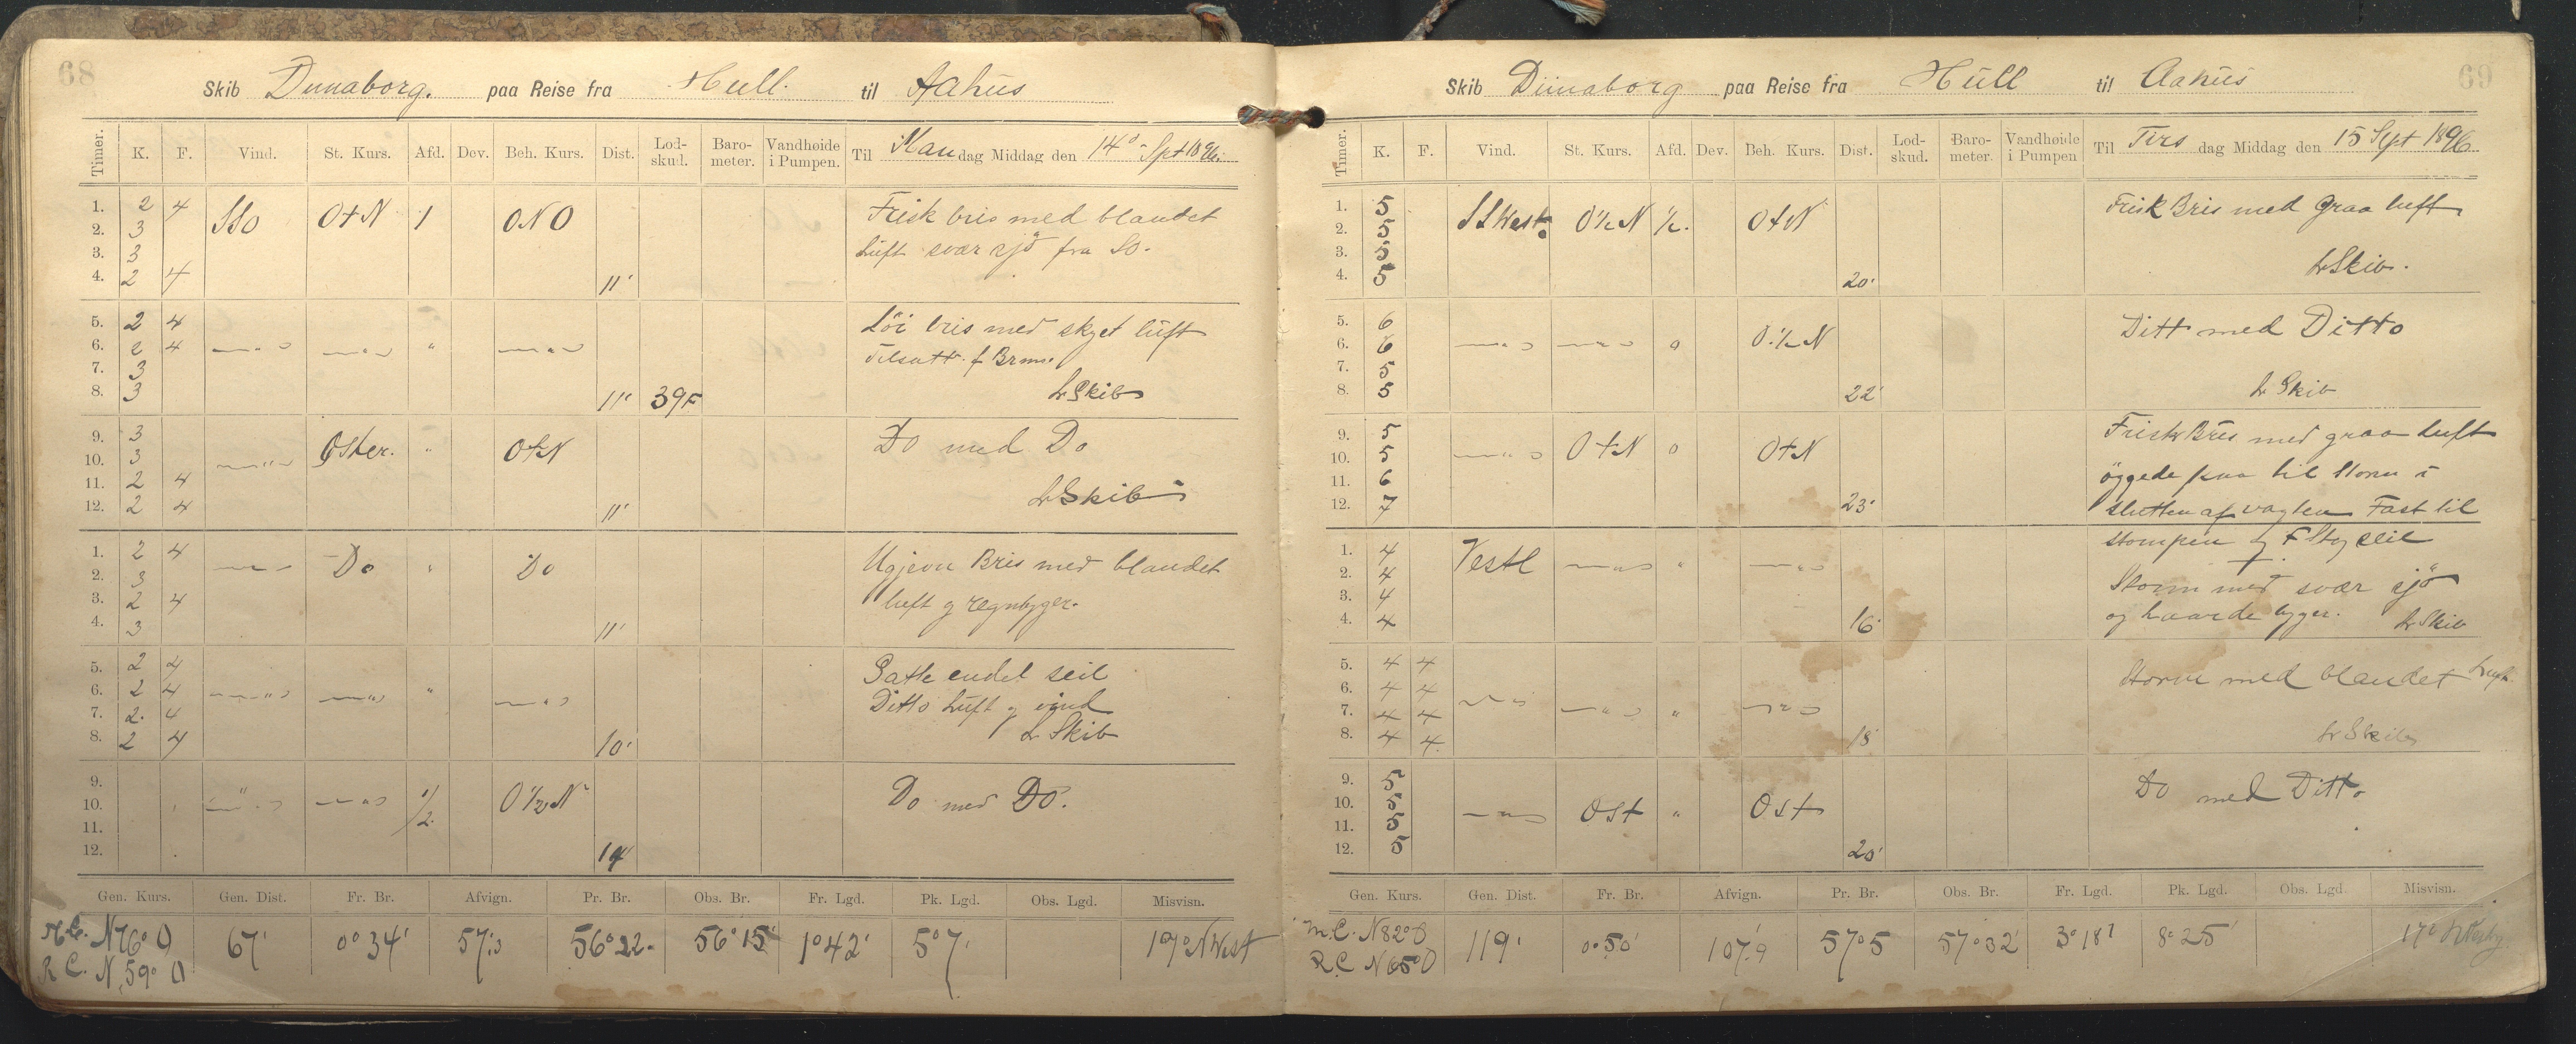 68
Skib Dunaborg. paa Reise fra Hull. til Aahus
Timer. K. F. Vind. St. Kurs. Afd. Dev. Beh. Kurs. Dist. Lod-skud. Baro-meter. Vandhøide i Pumpen. Til Mandag Middag den 14d Spt 1896.
1. 2 4 SSO O+N 1 ONO Frisk bris med blandet
2. 3 luft svær sjö fra SO.
3. 3
4. 2 4 11'
5. 2 4 Löi bris med skyet luft
6. 2 4 " " " " Tilsatt
7. 3
8. 3 11' 39F LrSkib
9. 3 " Oster. " O+N Do med Do
10. 3
11. 2 4 LrSkib
12. 2 4 11'
1. 2 4 " Do " Do Ugjevn Bris med blandet
2. 3 luft og regnbyger.
3. 2 4
4. 3 11'
5. 2 4 Satte endel seil
6. 2 4 " " " " Ditto luft og vind
7. 2. 4 Lr Skib
8. 2 4 10'
9.
10. " " 1/2 O 1/2 N Do med Do.
11.
12. 14
Gen. Kurs. Gen. Dist. Fr. Br. Afvign. Pr. Br. Obs. Br. Fr. Lgd. Pk. Lgd. Obs. Lgd. Misvisn.
M.C. N76° O 67' 0°34' 57'.3 56°22. 56°15' 1°42' 5°7' 17° N West
R C. N. 59° O
69
Skib Dünaborg paa Reise fra Hull til Aahus
Timer. K. F. Vind. St. Kurs. Afd. Dev. Beh. Kurs. Dist. Lod-skud. Baro-meter. Vandhøide i Pumpen Til Tirsdag Middag den 15 Sept 1896
1. 5 SSWest. O 1/2 N 1/2. O+N Frisk Bris med graa luft
2. 5
3. 5 LrSkib.
4. 5 20'
5. 6 Ditt med Ditto
6. 6 " " " O. 1/2 N
7. 5
8. 5 22' Lr Skib
9. 5 Frisk Bris med graa luft
10. 5 " O+N " O+N öggede paa til Storm i
11. 6
12. 7 23' slutten af vagten Fast til
1. 4 Vestl " " " stompen og F Stag seil
2. 4 Storm med svær sjö
3. 4 og haarde byger. Lr Skib
4. 4 16'
5. 4 4 Storm med blandet luft.
6. 4 4 " " " "
7. 4 4
8. 4 4. 18' LrSkib
9. 5 Do med Ditto
10. 5 " Ost " Ost
11. 5
12. 5 20'
Gen. Kurs. Gen. Dist. Fr. Br. Afvign. Pr. Br. Obs. Br. Fr. Lgd. Pk. Lgd. Obs. Lgd. Misvisn.
m.C. N82°O 119' 0°50' 107'.9 57°5 57°32' 3°18' 8°25' 17°
R.C N65°O